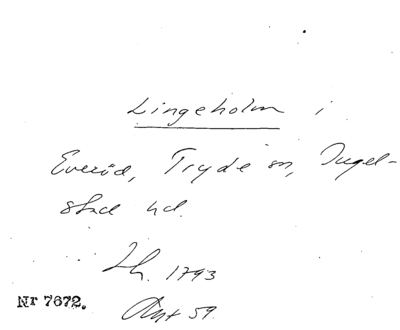 Lingeholm i
Everöd, Tryde sn, Ingel-
stad hd.
Lh. 1793
Nr 7672.
Akt 59.